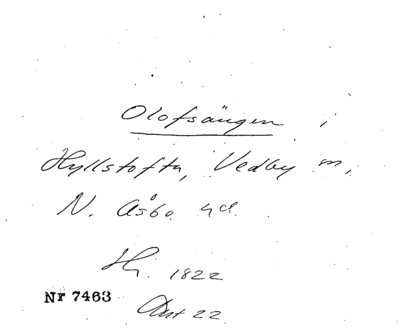 Olofsängen i
Hyllstofta, Vedby sn,
N. Åsbo hd.
Hj. 1822
Nr 7463
Akt 22.